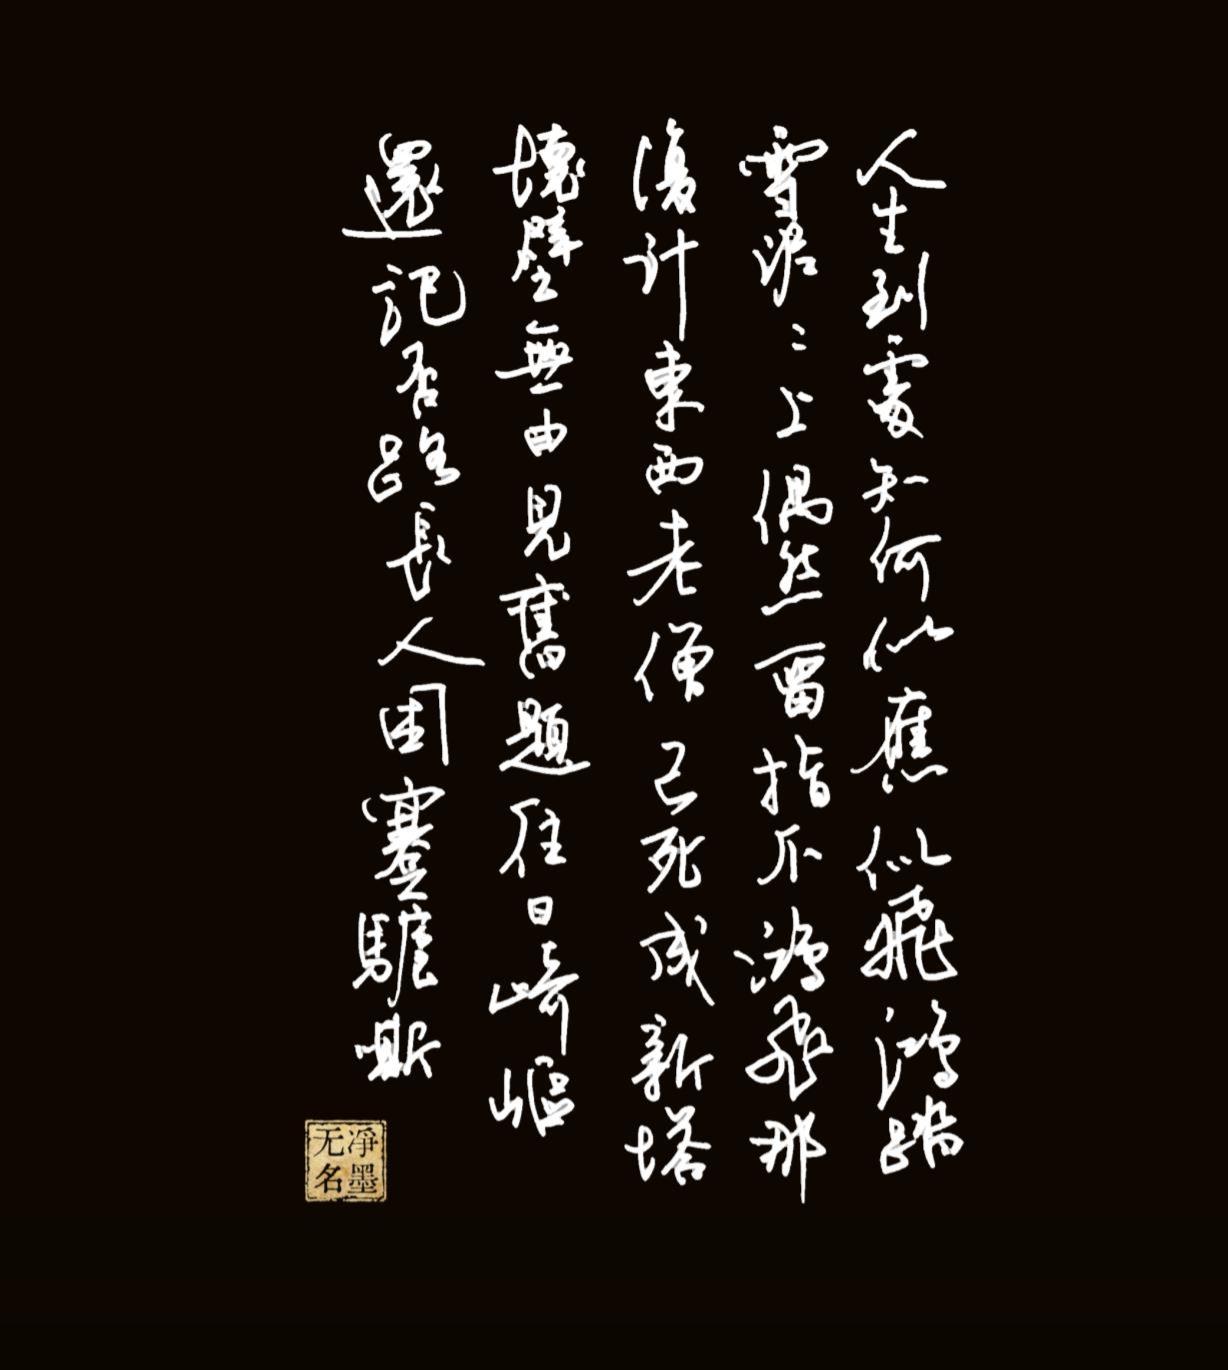 人生到處知何似應似飛鴻踏
雪泥〻上偶然留指爪鴻飛那
復計東西老僧已死成新塔
壞壁無由見舊題往日崎嶇
還記否路長人困蹇驢嘶
凈墨
无名